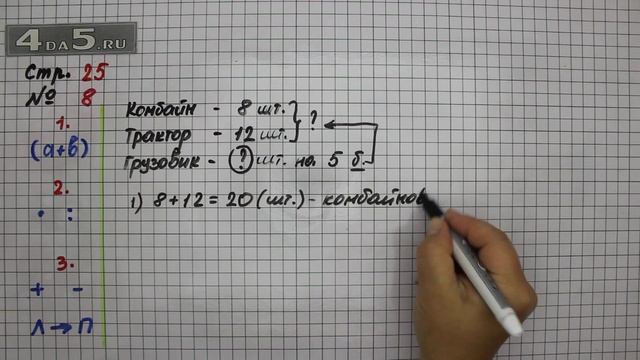 4DA5.RU
Стр. 25
№ 8
1.
(а+в)
2.
· :
3.
+ -
Л → П
Комбайн - 8 шт. } ?
Трактор - 12 шт.
Грузовик - ? шт. на 5 б.
1) 8 + 12 = 20 (шт.) - комбайнов